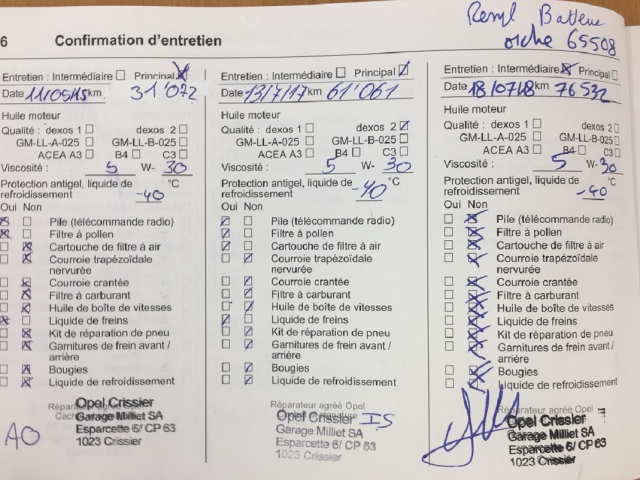 Reml Batterie
orche 65508
6 Confirmation d'entretien
Entretien : Intermédiaire ☐ Principal ☒
Date 11/05/15 km 31'072
Huile moteur
Qualité : dexos 1 ☐ dexos 2 ☐
GM-LL-A-025 ☐ GM-LL-B-025 ☐
ACEA A3 ☐ B4 ☐ C3 ☐
Viscosité : 5 W- 30
Protection antigel, liquide de
refroidissement -40 °C
Oui Non
☒ ☐ Pile (télécommande radio)
☒ ☐ Filtre à pollen
☐ ☒ Cartouche de filtre à air
☐ ☒ Courroie trapézoïdale
nervurée
☐ ☒ Courroie crantée
☐ ☒ Filtre à carburant
☐ ☒ Huile de boîte de vitesses
☒ ☐ Liquide de freins
☐ ☒ Kit de réparation de pneu
☐ ☒ Garnitures de frein avant /
arrière
☐ ☒ Bougies
☐ ☒ Liquide de refroidissement
Opel Crissier
Garage Milliet SA
Esparcette 6/ CP 63
1023 Crissier
AO
Entretien : Intermédiaire ☐ Principal ☑
Date 13/7/17 km 61'061
Huile moteur
Qualité : dexos 1 ☐ dexos 2 ☑
GM-LL-A-025 ☐ GM-LL-B-025 ☐
ACEA A3 ☐ B4 ☐ C3 ☐
Viscosité : 5 W- 30
Protection antigel, liquide de
refroidissement -40 °C
Oui Non
☑ ☐ Pile (télécommande radio)
☑ ☐ Filtre à pollen
☑ ☐ Cartouche de filtre à air
☐ ☑ Courroie trapézoïdale
nervurée
☐ ☑ Courroie crantée
☐ ☑ Filtre à carburant
☐ ☑ Huile de boîte de vitesses
☑ ☐ Liquide de freins
☐ ☑ Kit de réparation de pneu
☐ ☑ Garnitures de frein avant /
arrière
☐ ☑ Bougies
☐ ☑ Liquide de refroidissement
Réparateur agréé Opel
Opel Crissier IS
Garage Milliet SA
Esparcette 6/ CP 63
1023 Crissier
Entretien : Intermédiaire ☒ Principal ☐
Date 18/07/18 km 76532
Huile moteur
Qualité : dexos 1 ☐ dexos 2 ☐
GM-LL-A-025 ☐ GM-LL-B-025 ☐
ACEA A3 ☐ B4 ☐ C3 ☐
Viscosité : 5 W- 30
Protection antigel, liquide de
refroidissement -40 °C
Oui Non
☐ ☒ Pile (télécommande radio)
☐ ☒ Filtre à pollen
☐ ☒ Cartouche de filtre à air
☐ ☒ Courroie trapézoïdale
nervurée
☐ ☒ Courroie crantée
☐ ☒ Filtre à carburant
☐ ☒ Huile de boîte de vitesses
☐ ☒ Liquide de freins
☐ ☒ Kit de réparation de pneu
☐ ☒ Garnitures de frein avant /
arrière
☐ ☒ Bougies
☐ ☒ Liquide de refroidissement
Réparateur agréé Opel
Opel Crissier
Garage Milliet SA
Esparcette 6/ CP 63
1023 Crissier